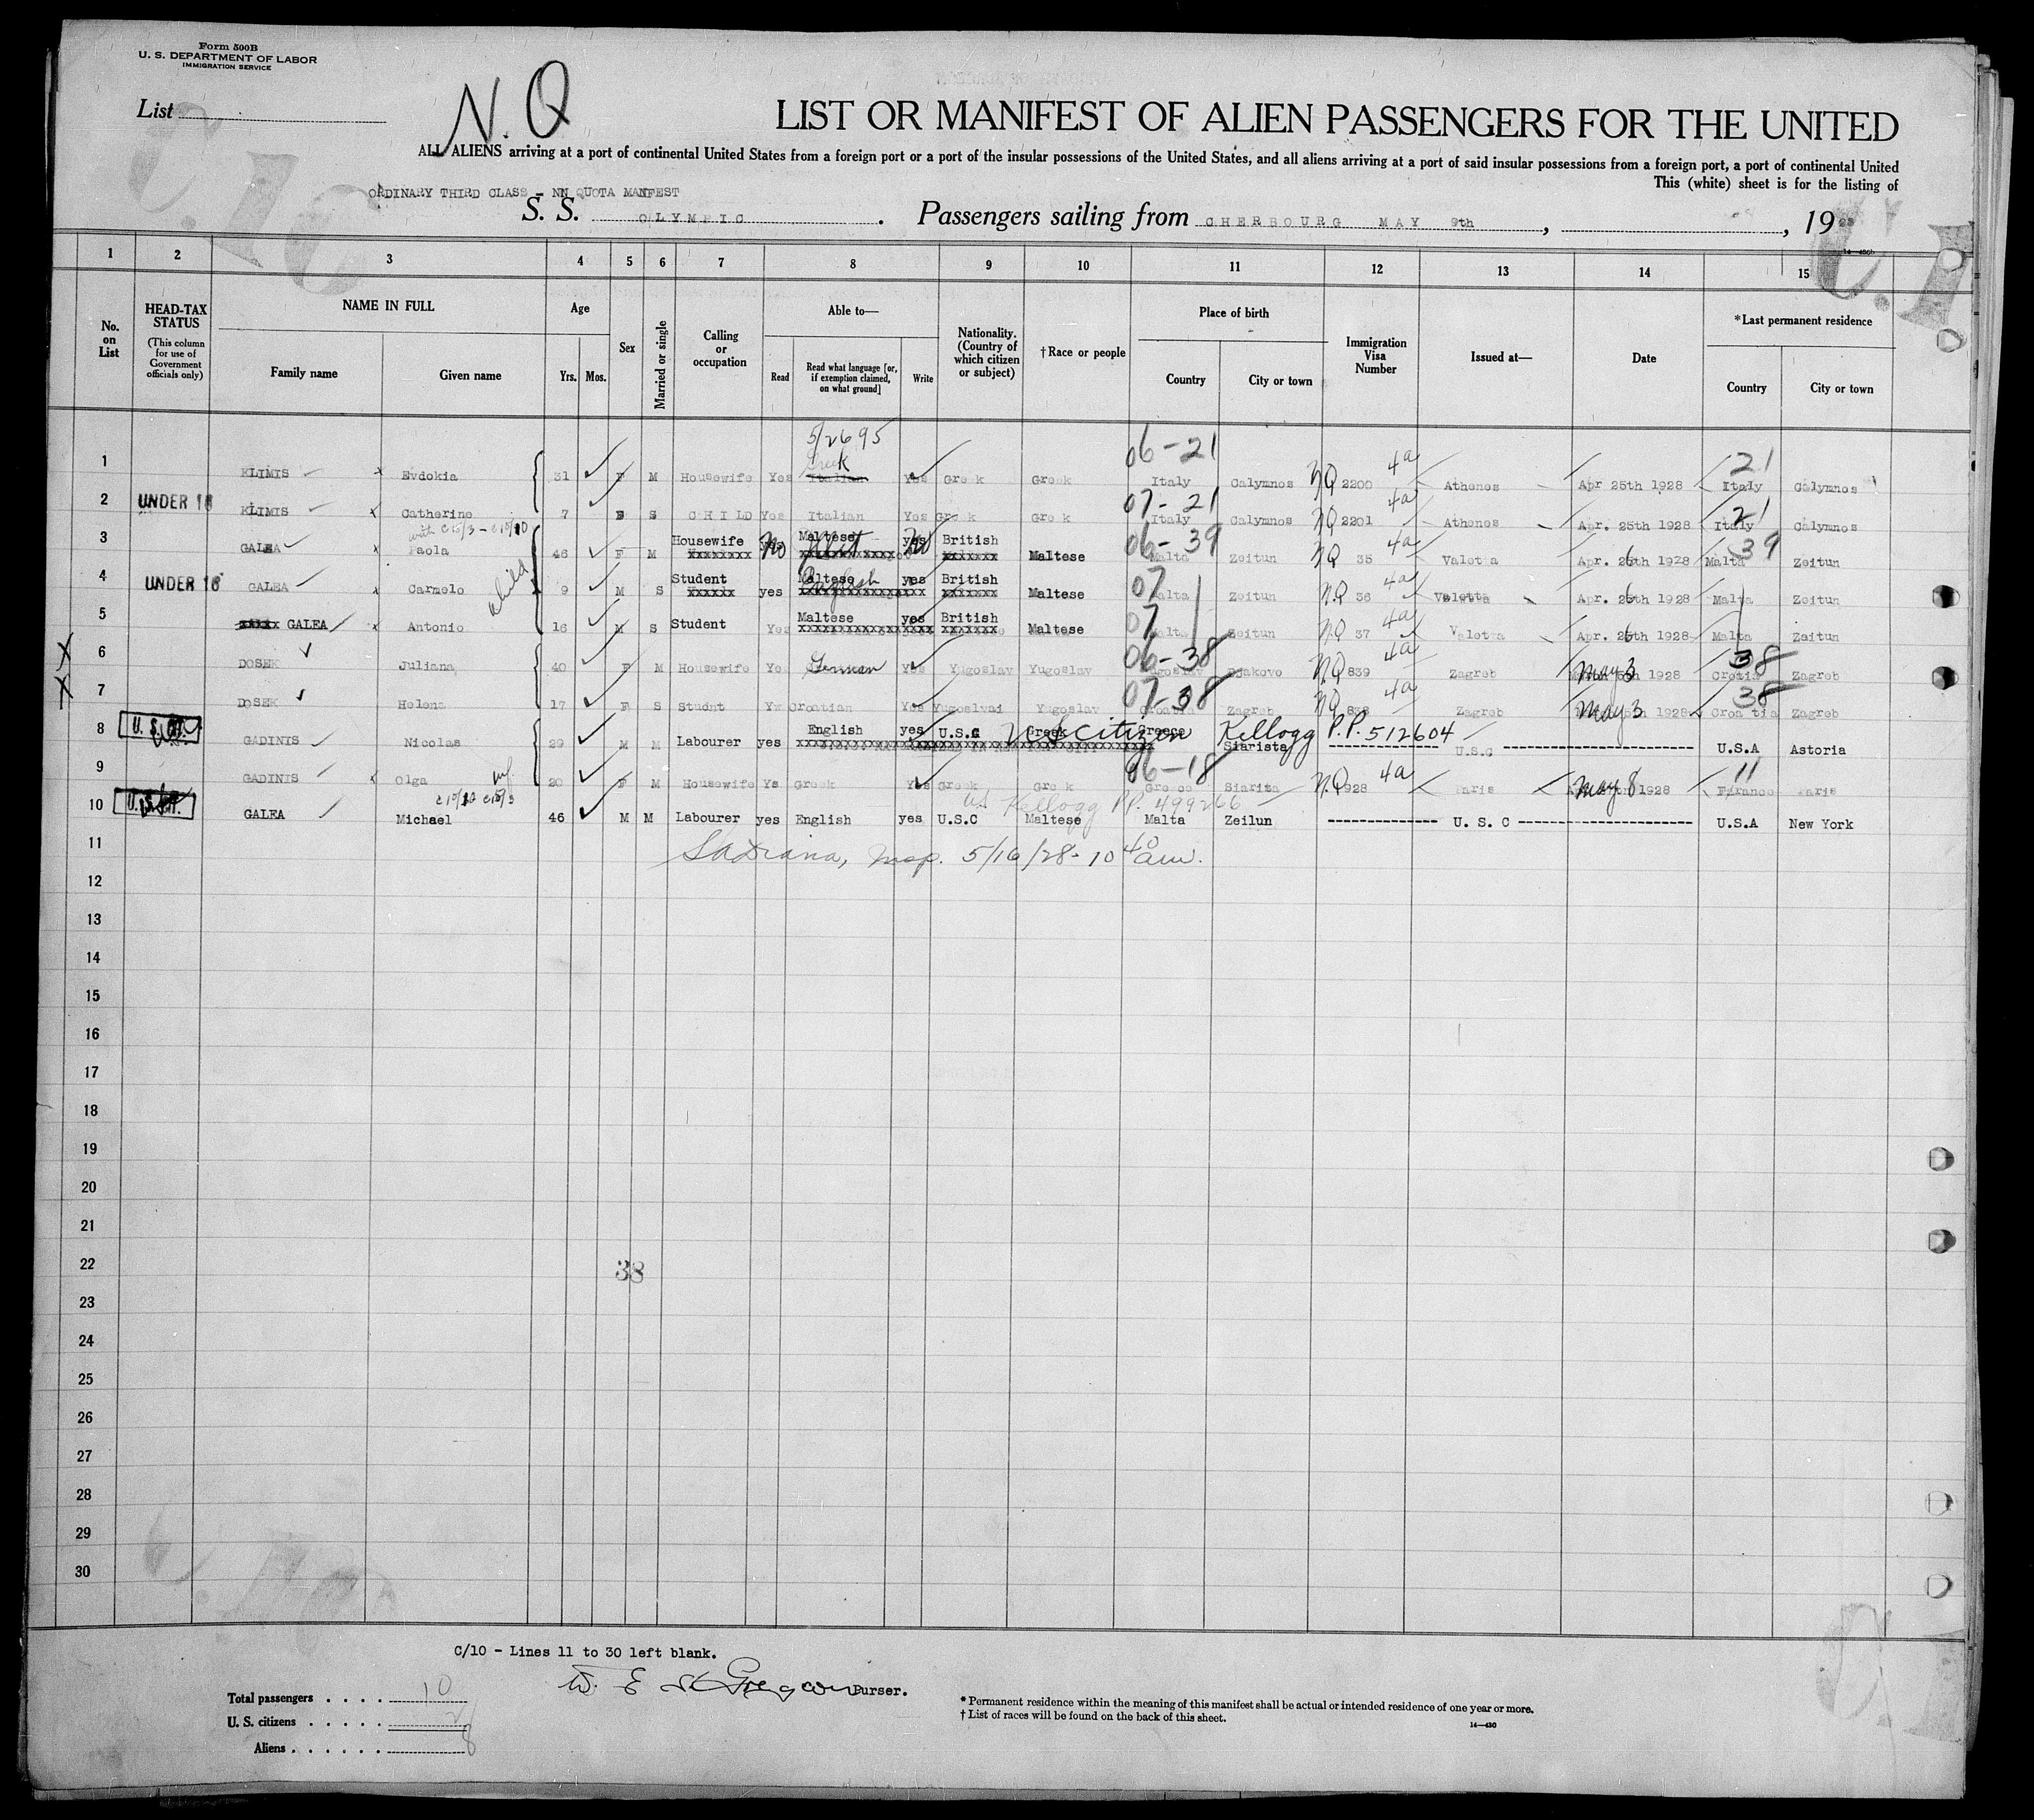 Form 500B
U. S. DEPARTMENT OF LABOR
IMMIGRATION SERVICE
List
N.Q
LIST OR MANIFEST OF ALIEN PASSENGERS FOR THE UNITED
ALL ALIENS arriving at a port of continental United States from a foreign port or a port of the insular possessions of the United States, and all aliens arriving at a port of said insular possessions from a foreign port, a port of continental United
This (white) sheet is for the listing of
ORDINARY THIRD CLASS - NN QUOTA MANFEST
S. S. OLYMPIC. Passengers sailing from CHERBOURG MAY 9th, , 1928
14-430b
1 2 3 4 5 6 7 8 9 10 11 12 13 14 15
No. on List
HEAD-TAX STATUS (This column for use of Government officials only)
NAME IN FULL
Family name Given name
Age
Yrs. Mos.
Sex
Married or single
Calling or occupation
Able to—
Read Read what language [or, if exemption claimed, on what ground] Write
Nationality. (Country of which citizen or subject)
†Race or people
Place of birth
Country City or town
Immigration Visa Number
Issued at—
Date
*Last permanent residence
Country City or town
5/2695
06-21 4a 21
Greek
1 KLIMIS x Evdokia 31 F M Housewife Yes Italian Yes Grek Grek Italy Calymnos NQ 2200 Athenes Apr 25th 1928 Italy Calymnos
07-21 4a 21
2 UNDER 16 KLIMIS x Catherine 7 F S CHILD Yes Italian Yes Grek Grek Italy Calymnos NQ 2201 Athenes Apr. 25th 1928 Italy Calymnos
with c15/3 - c15/10
3 GALEA x Paola 46 F M Housewife No Maltese yes No British Maltese 06-39 Malta Zeitun NQ 35 4a Valetta Apr. 26th 1928 Malta 39 Zeitun
child
4 UNDER 16 GALEA x Carmelo 9 M S Student yes Maltese English yes British Maltese 07 Malta Zeitun NQ 36 4a Valetta Apr. 26th 1928 Malta Zeitun
5 GALEA x Antonio 16 M S Student Yes Maltese yes British Maltese 07 Malta Zeitun NQ 37 4a Valetta Apr. 26th 1928 Malta Zeitun
X 6 DOSEK Juliana 40 F M Housewife Ye German Yes Yugoslav Yugoslav 06-38 Yugoslav Djakovo NQ 839 4a Zagreb May 3 1928 38 Croatia Zagreb
X 7 DOSEK Helena 17 F S Studnt Croatian Yes Yugoslvai Yugoslav 07-38 Croatia Zagreb NQ 838 4a Zagreb May 3 1928 38 Croa tia Zagreb
8 GADINIS Nicolas 29 M M Labourer yes English yes U.S.C Greek US citizen Greece Siarista Kellogg P.P. 512604 U.S.C U.S.A Astoria
wf.
9 GADINIS x Olga 20 F M Housewife Ys Greek Yes Greek Grek 06-18 Greece Siarita NQ 928 4a Paris May 8 1928 11 France Paris
c15/10 c15/3
US Kellogg PP. 499266
10 GALEA Michael 46 M M Labourer yes English yes U.S.C Maltese Malta Zeilun U. S. C U.S.A New York
11 Insp. 5/16/28 - 10 40 am.
12
13
14
15
16
17
18
19
20
21
22 38
23
24
25
26
27
28
29
30
C/10 - Lines 11 to 30 left blank.
Purser.
Total passengers . . . . 10
U. S. citizens . . . . . 2
Aliens . . . . . . 8
* Permanent residence within the meaning of this manifest shall be actual or intended residence of one year or more.
† List of races will be found on the back of this sheet.
14-430